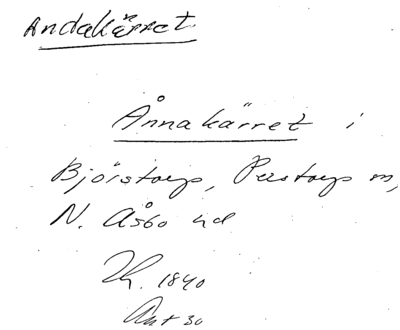 Andakärret
Ånnakärret i
Björstorp, Perstorp sn,
N. Åsbo hd
Lh. 1840
Akt 30